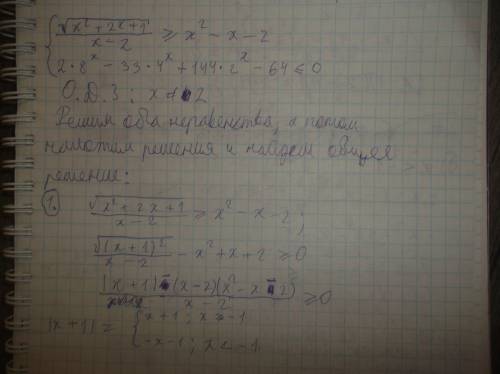 { √(x² + 2x + 1) / (x − 2) ≥ x² − x − 2
{ 2 · 8ˣ − 33 · 4ˣ + 144 · 2ˣ − 64 ≤ 0
О.Д.З: x ≠ 2
Решим оба неравенства, а потом
решения и найдем общее
решение:
1. √(x² + 2x + 1) / (x − 2) ≥ x² − x − 2;
√((x + 1)²) / (x − 2) − x² + x + 2 ≥ 0
(|x + 1| − (x − 2)(x² − x − 2)) / (x − 2) ≥ 0
|x + 1| = { x + 1; x ≥ −1
{ −x − 1; x < −1